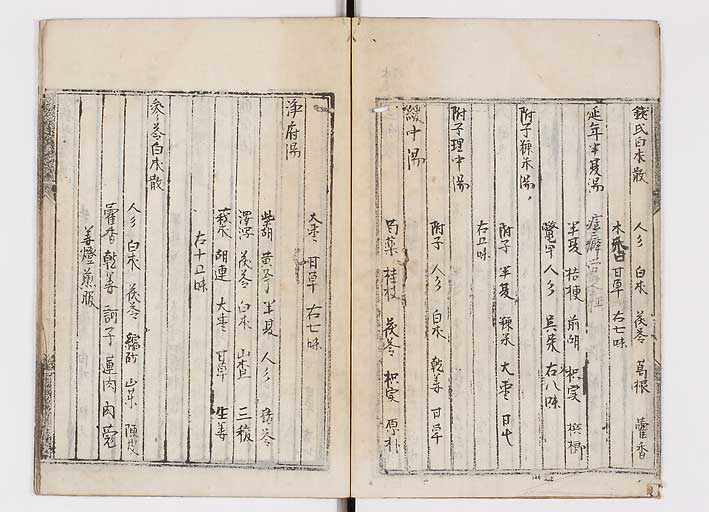 錢氏白朮散
人彡 白朮 茯苓 葛根 藿香
木 甘草 右七味
延年半夏湯
半夏 桔梗 前胡 枳実 檳榔
鱉甲 人彡 呉朱 右八味
附子粳米湯
附子 半夏 粳米 大棗 甘
右五味
附子理中湯
附子 人彡 白朮 乾姜 甘草
緩中湯
芍藥 桂枝 茯苓 枳実 厚朴
大棗 甘草 右七味
浄府湯
柴胡 黄芩 半夏 人彡 茯苓
澤瀉 茯苓 白朮 山査 三稜
莪朮 胡連 大棗 甘草 生姜
右十五味
参苓白朮散
人彡 白朮 茯苓 縮砂 山藥 陳皮
藿香 乾姜 訶子 蓮肉 肉
姜燈煎服